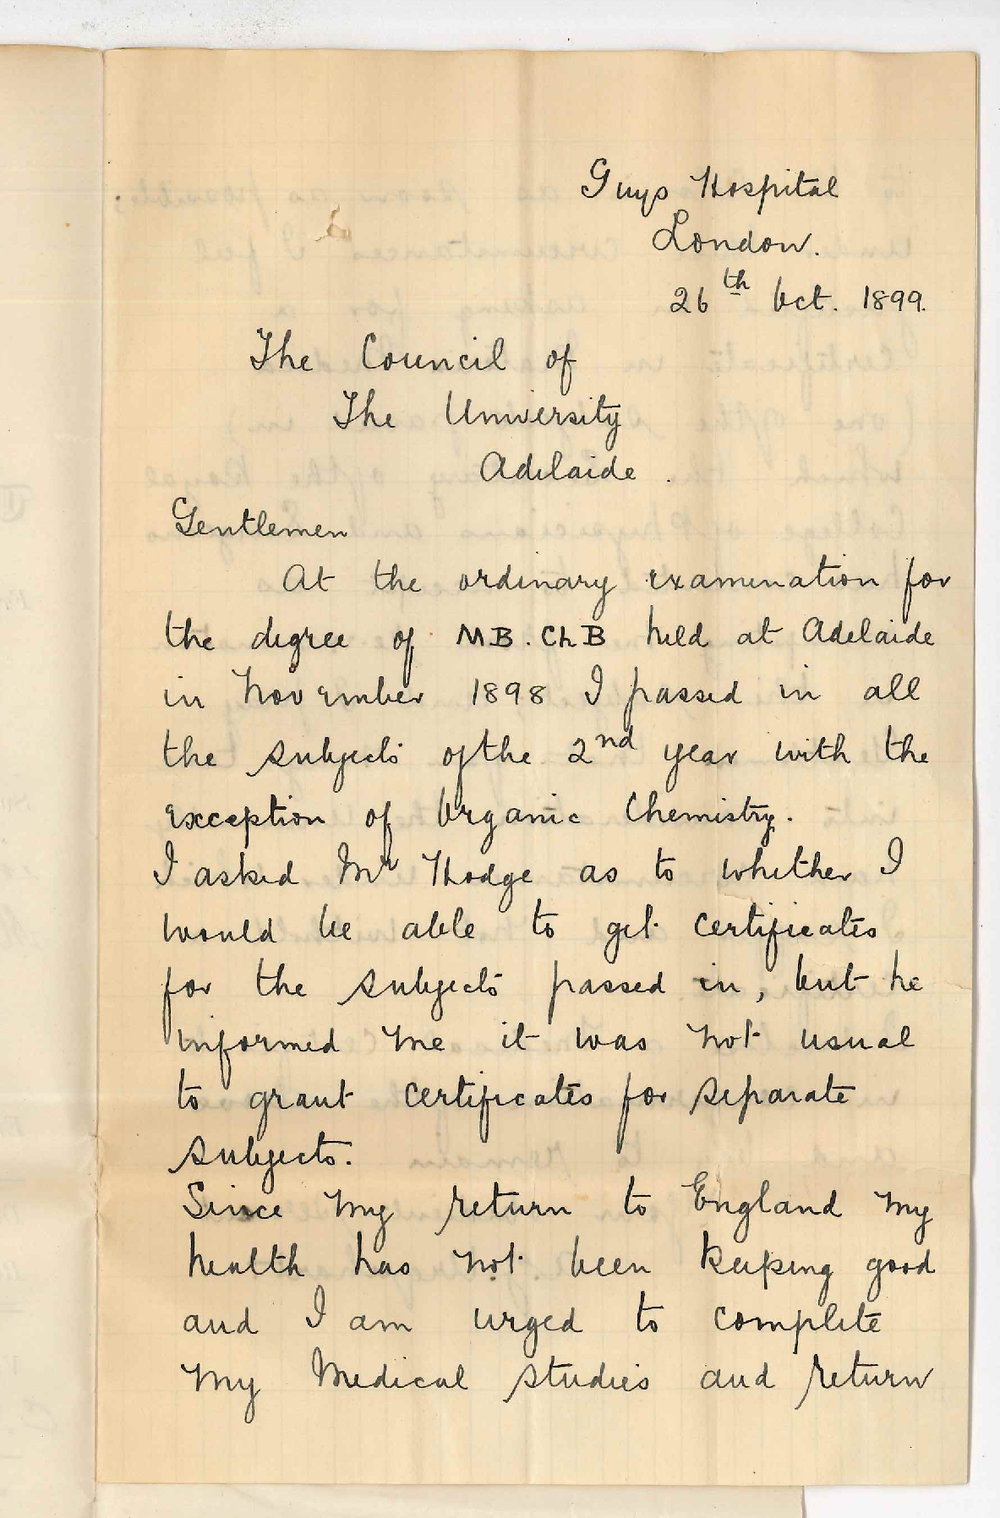 Guys Hospital
London.
26th Oct. 1899.
The Council of
The University
Adelaide.
Gentlemen
At the ordinary examination for
the degree of MB. Ch B held at Adelaide
in November 1898 I passed in all
the subjects of the 2nd year with the
exception of Organic Chemistry.
I asked Mr Hodge as to whether I
would be able to get certificates
for the subjects passed in, but he
informed me it was not usual
to grant certificates for separate
subjects.
Since my return to England my
health has not been keeping good
and I am urged to complete
my Medical studies and return